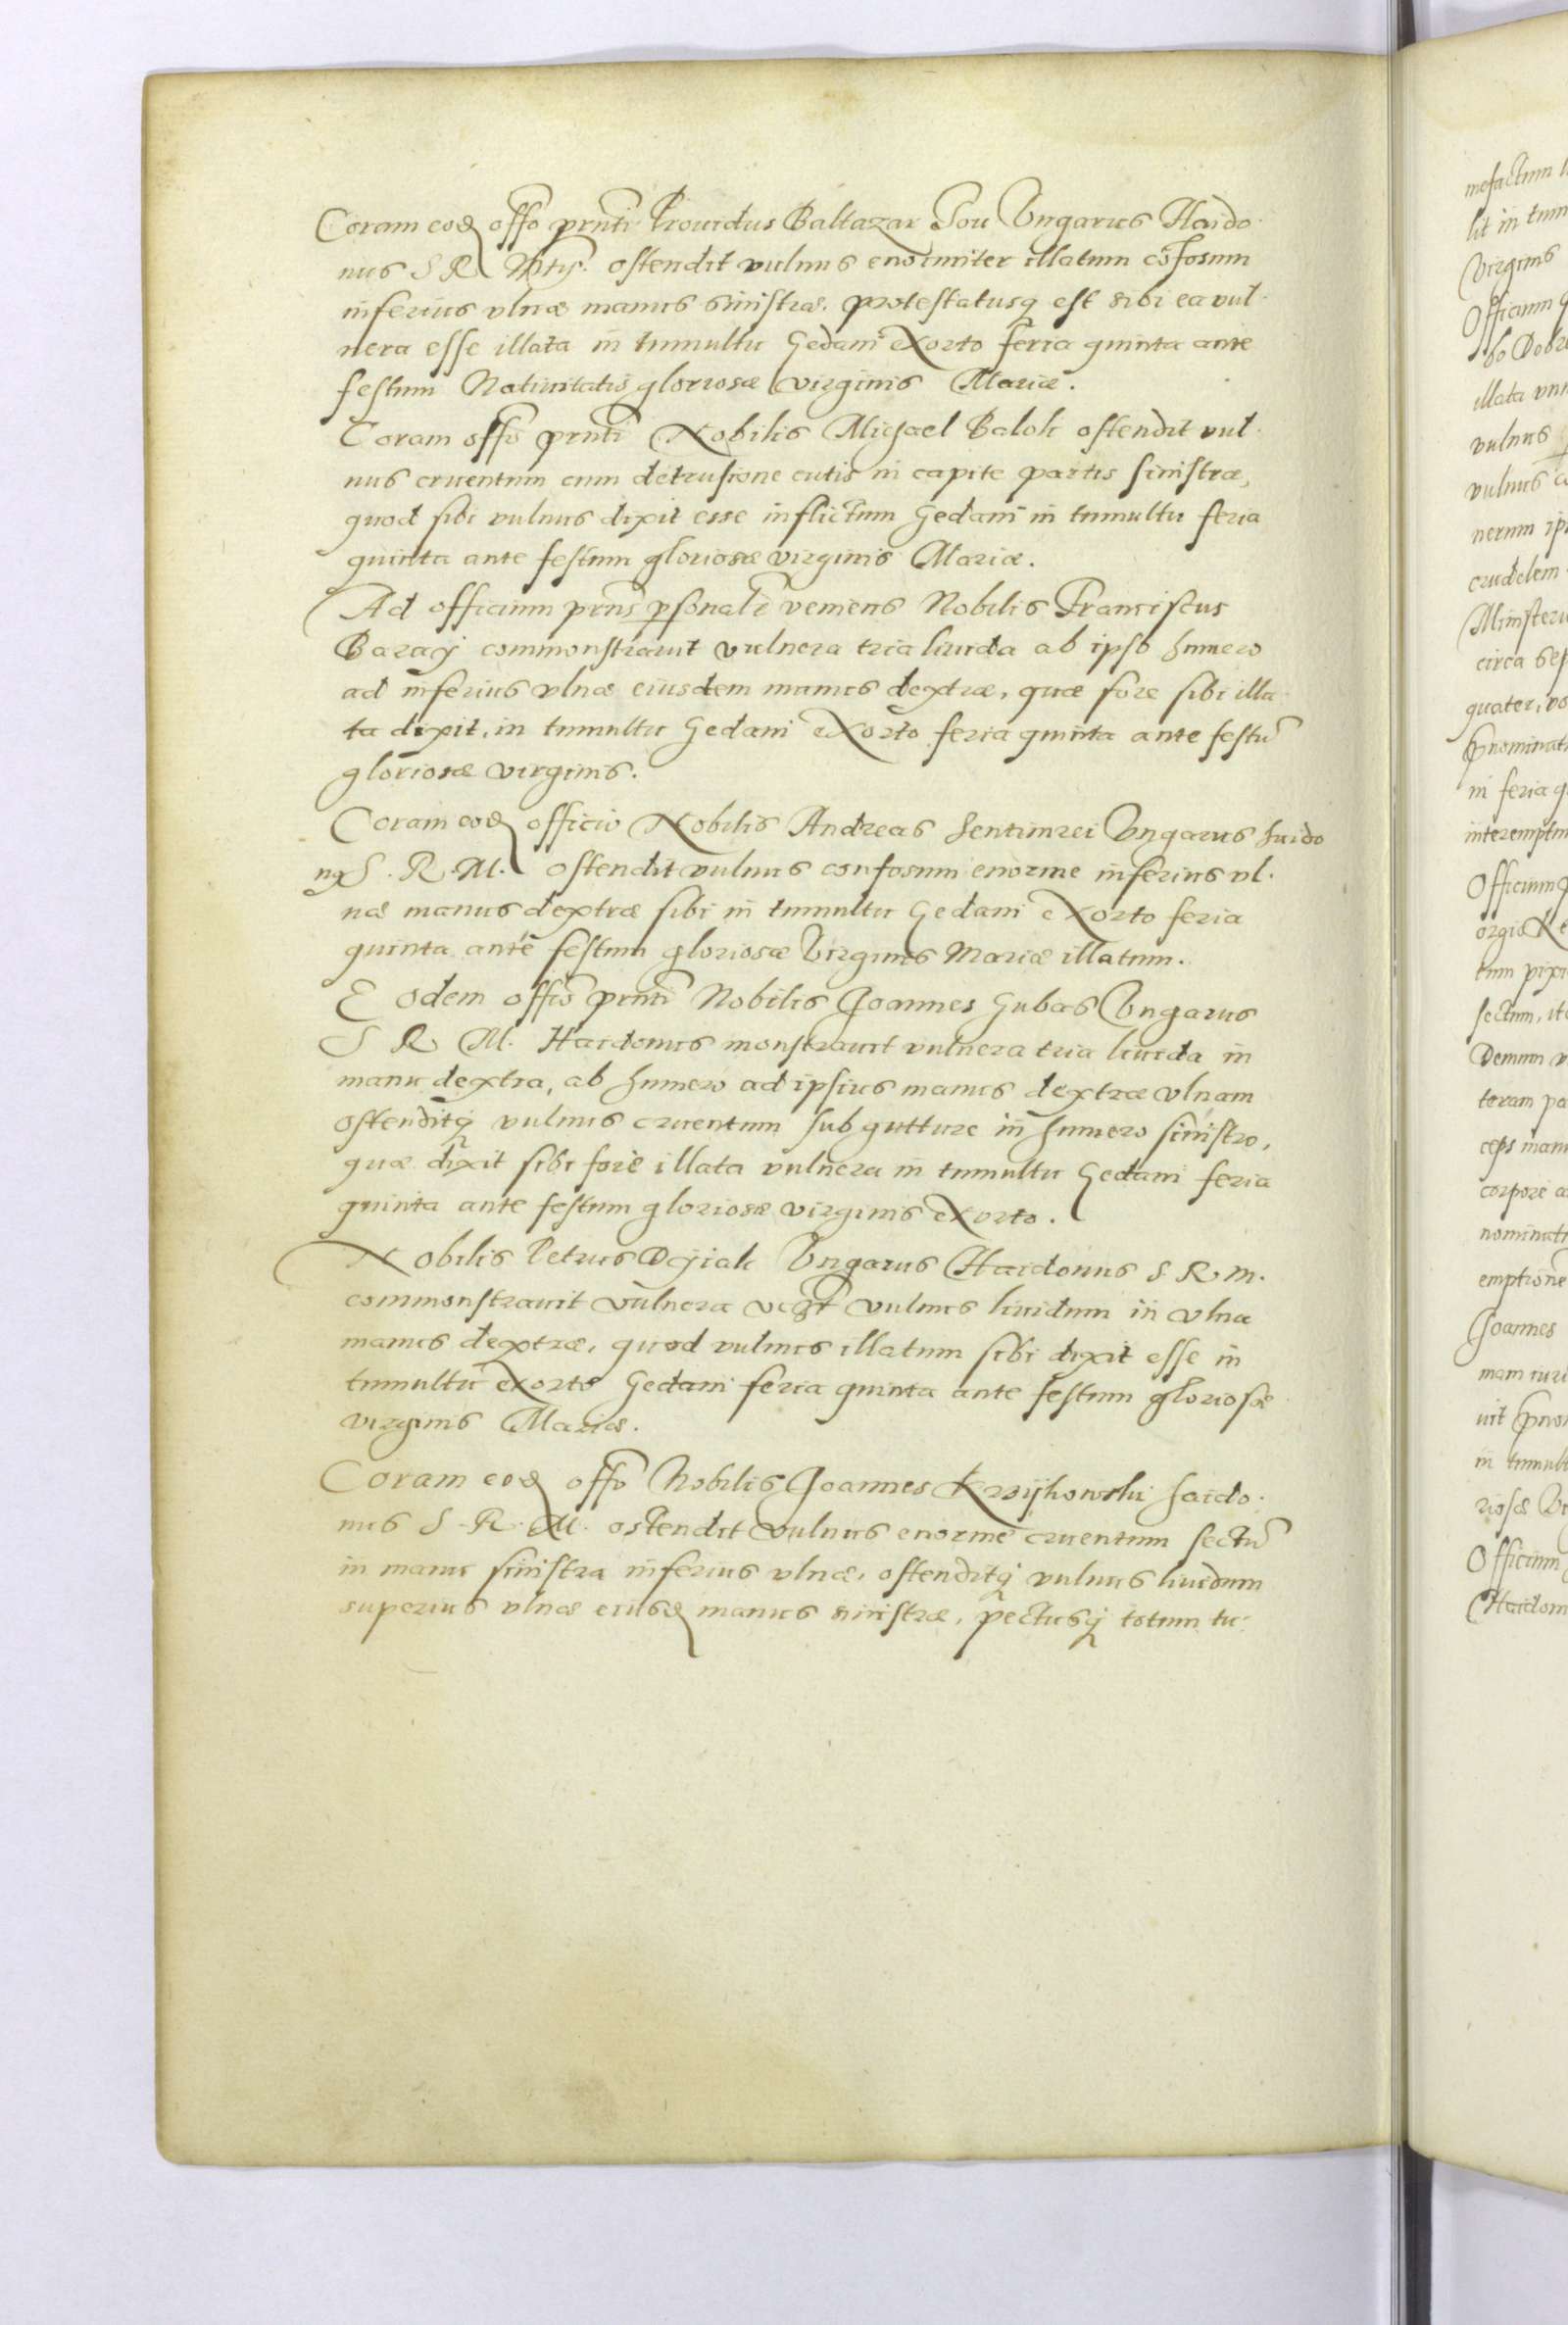 Coram eod offo prnti Prouidus Baltazar Sou Vngarus Haido
nus S R Mtis. ostendit vulnus enormiter illatum cōfosum
inferius vlnæ manus sinistræ. protestatusq est sibi ea vul
nera esse illata in tumultu Gedani exorto feria quinta ante
festum Natiuitatis gloriosæ virginis Mariæ.
Coram offo prnti Nobilis Michael Balok ostendit vul
nus cruentum cum detrusione cutis in capite partis sinistræ,
quod sibi vulnus dixit esse inflictum Gedani in tumultu feria
quinta ante festum gloriosæ virginis Mariæ.
Ad officium prns psonalr veniens Nobilis Franciscus
Baraÿ commonstrauit vulnera tria liuida ab ipso humero
ad inferius vlnæ eiusdem manus dextræ, quæ fore sibi illa
ta dixit, in tumultu Gedani exorto feria quinta ante festū
gloriosæ virginis.
Coram eod officio Nobilis Andreas Sentimrei Vngarus haido
nq S. R. M. ostendit vulnus confosum enorme inferius vl.
næ manus dextræ sibi in tumultu Gedani exorto feria
quinta ante festum gloriosæ Virginis Mariæ illatum.
Eodem offio prnti Nobilis Joannes Gubas Vngarus
S R M. Haidonus monstrauit vulnera tria liuida in
manu dextra, ab humero ad ipsius manus dextræ vlnam
ostenditq vulnus cruentum sub gutture in humero sinistro,
quæ dixit sibi fore illata vulnera in tumultu Gedani feria
quinta ante festum gloriosæ virginis exorto.
Nobilis Petrus Dÿiak Vngarus Haidonus S R M.
commonstrauit vulnera vczt vulnus liuidum in vlna
manus dextræ, quod vulnus illatum sibi dixit esse in
tumultu exorto Gedani feria quinta ante festum gloriosæ
virginis Mariæ.
Coram eod offo Nobilis Joannes Krzijkowski haido.
nus S. R. M. ostendit vulnus enorme cruentum sectū
in manu sinistra inferius vlnæ, ostenditq vulnus liuidum
superius vlnæ eiusd manus sinistræ, pectusq totum tu
mefactum
lit in tum
Virginis
Officium
bo Dobr
illata vn
vulnus
vulnus
nerum ip
crudelem
Ministeri
circa sep
quater, vo
in feria q
interemptu
Officium
orgio
tum pixi
sectum, it
Demum v
teram pa
ceps man
corpore a
nominat
emptione
Joannes
mam iuri
in tumult
riosæ Vi
Officium
Haidon